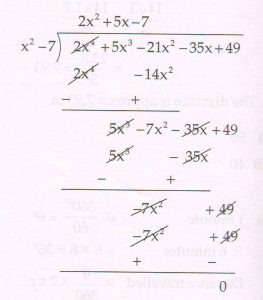 2x² + 5x - 7
x² - 7 ) 2x⁴ + 5x³ - 21x² - 35x + 49
2x⁴ - 14x²
- +
5x³ - 7x² - 35x + 49
5x³ - 35x
- +
-7x² + 49
-7x² + 49
+ -
0